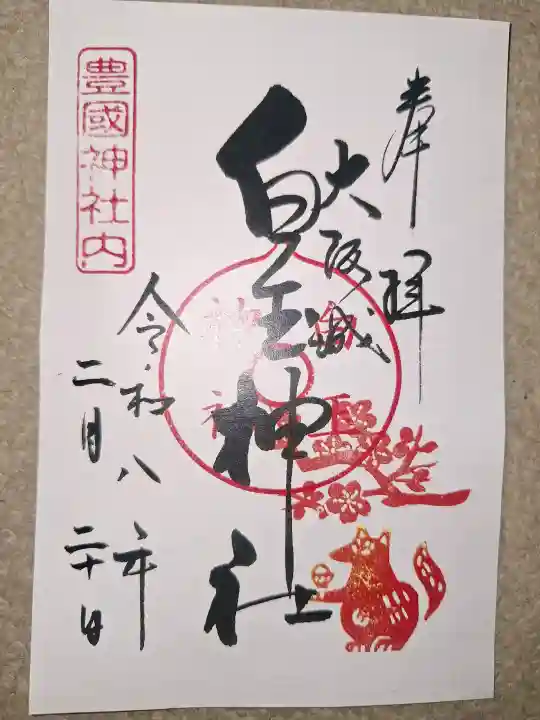 奉拝
大阪城
白玉神社
豊國神社内
令和八年
二月二十日